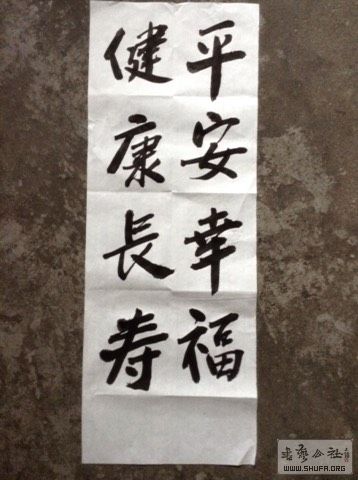 平安幸福
健康長寿
书法公社
WWW.SHUFA.ORG